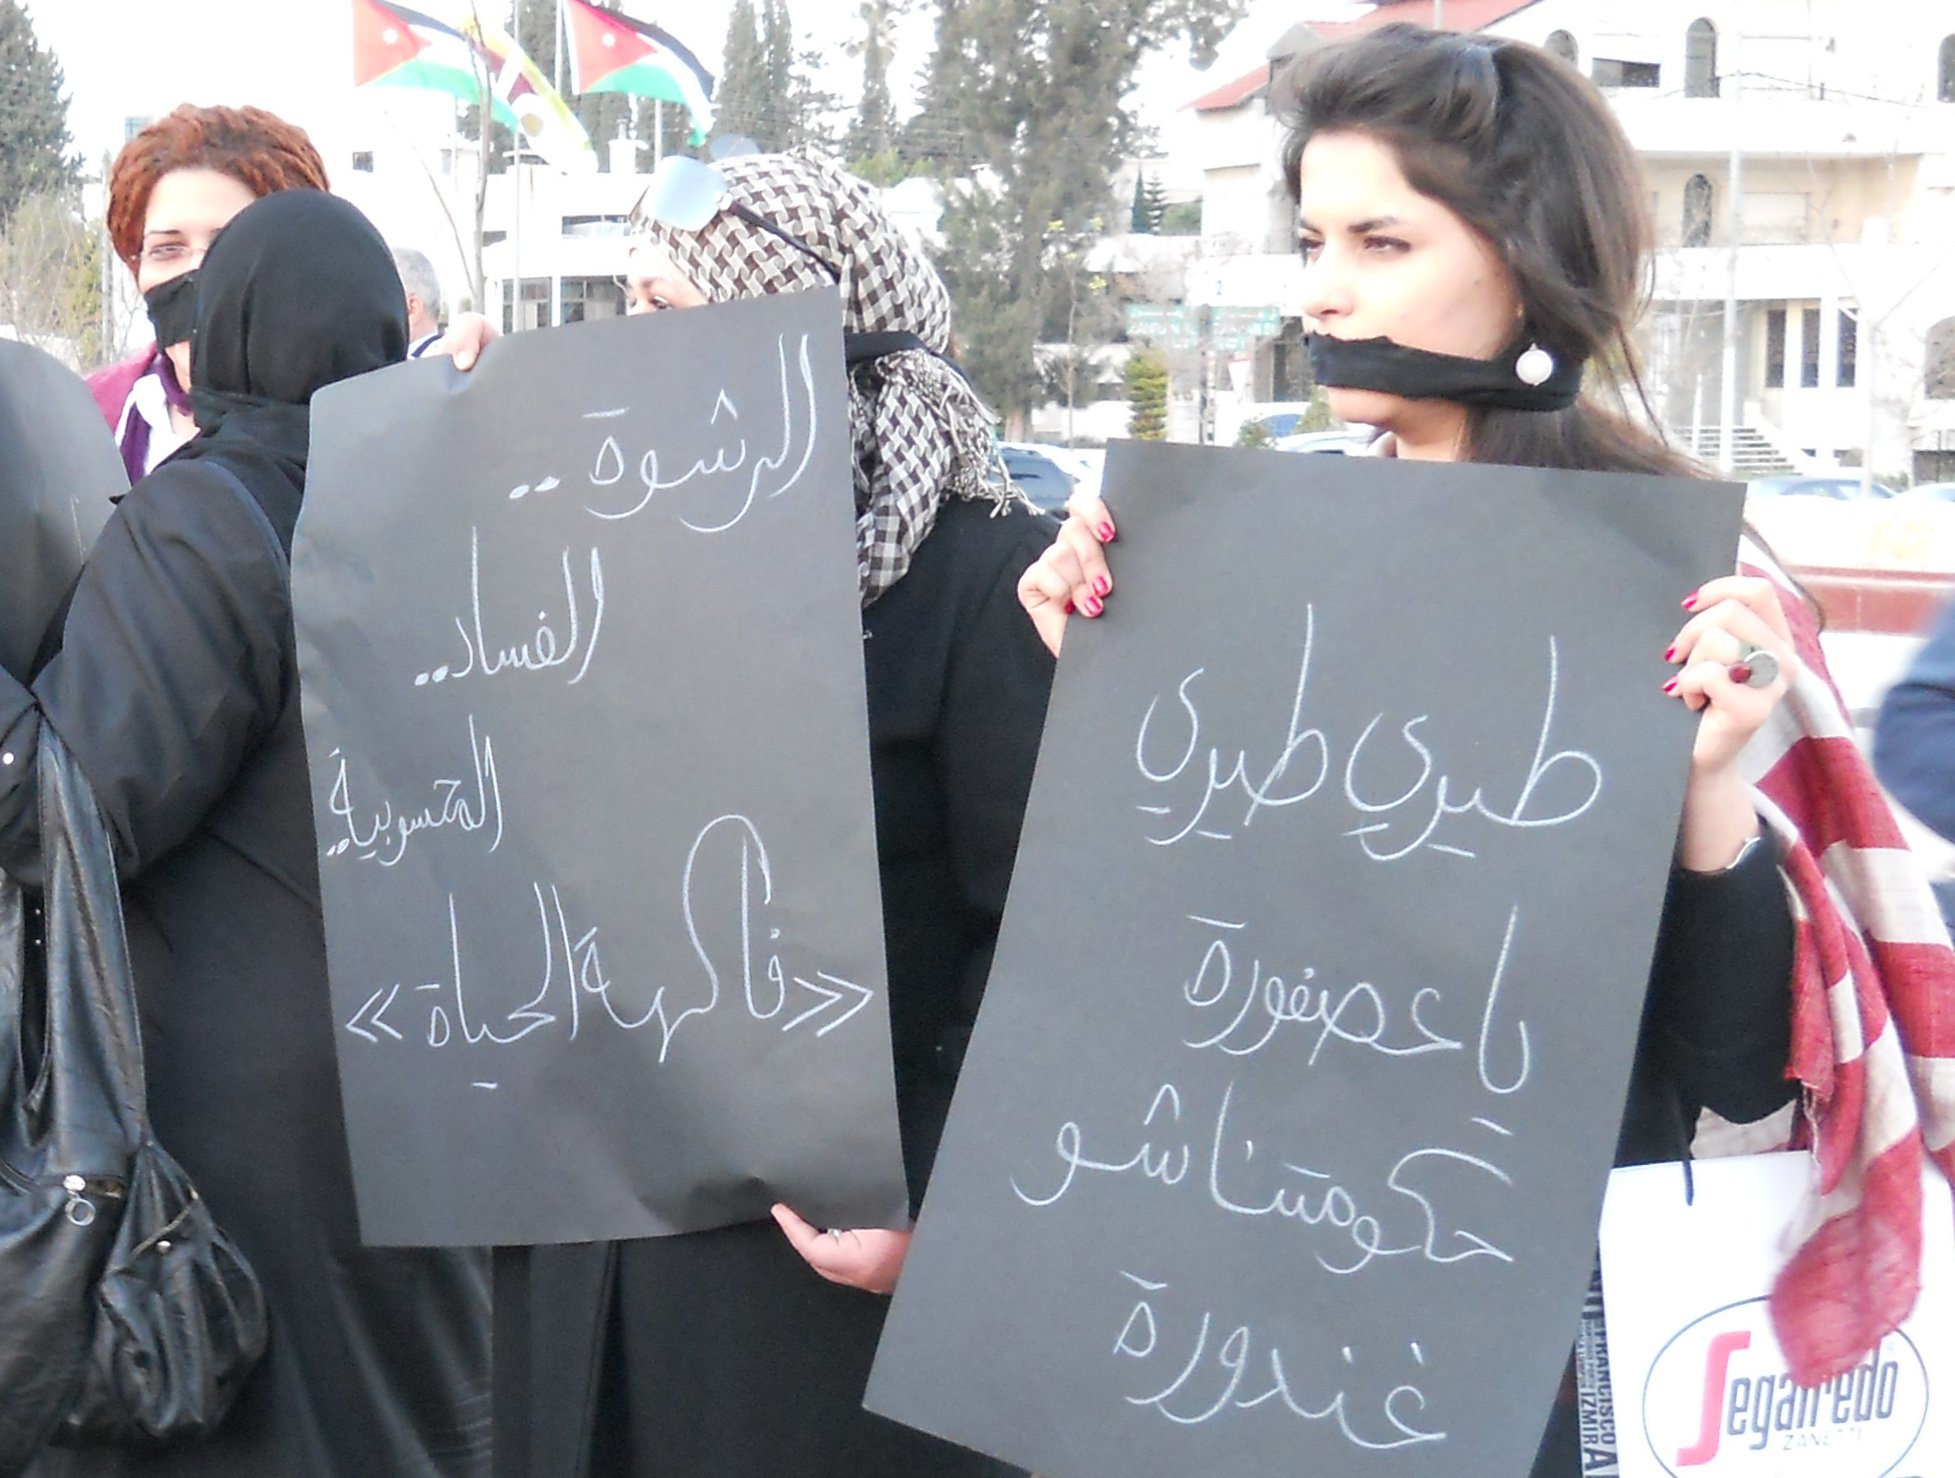 الرشوة ..
الفساد ..
المحسوبية
»فاكهة الحياة«
طيري طيري
يا عصفورة
حكومتنا شو
غندورة
Segafredo
ZANETTI